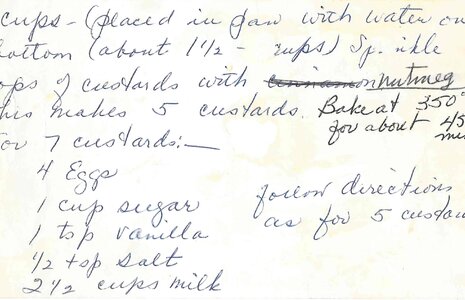 cups - (placed in pan with water on
bottom (about 1 1/2 - cups) Sp. inkle
ops of custards with cinnamon nutmeg
his makes 5 custards. Bake at 350°
for about 45
min
For 7 custards:—
4 Eggs
1 cup sugar
1 tsp vanilla
1/2 tsp salt
2 1/2 cups milk
follow directions
as for 5 custa